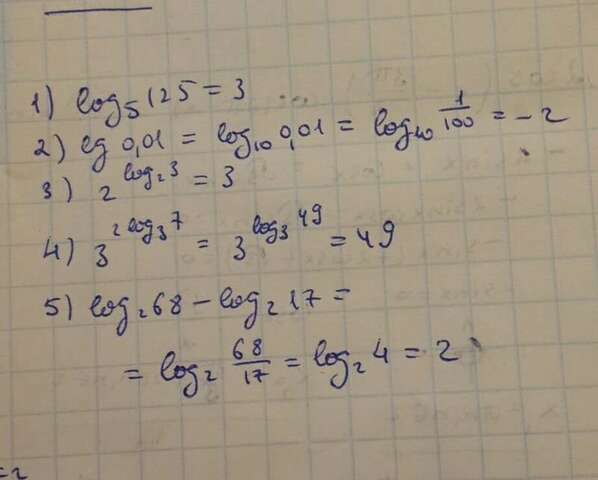 1) log₅125 = 3
2) lg 0,01 = log₁₀0,01 = log₁₀ 1/100 = -2
3) 2^(log₂3) = 3
4) 3^(2log₃7) = 3^(log₃49) = 49
5) log₂68 - log₂17 =
= log₂ 68/17 = log₂4 = 2
=2